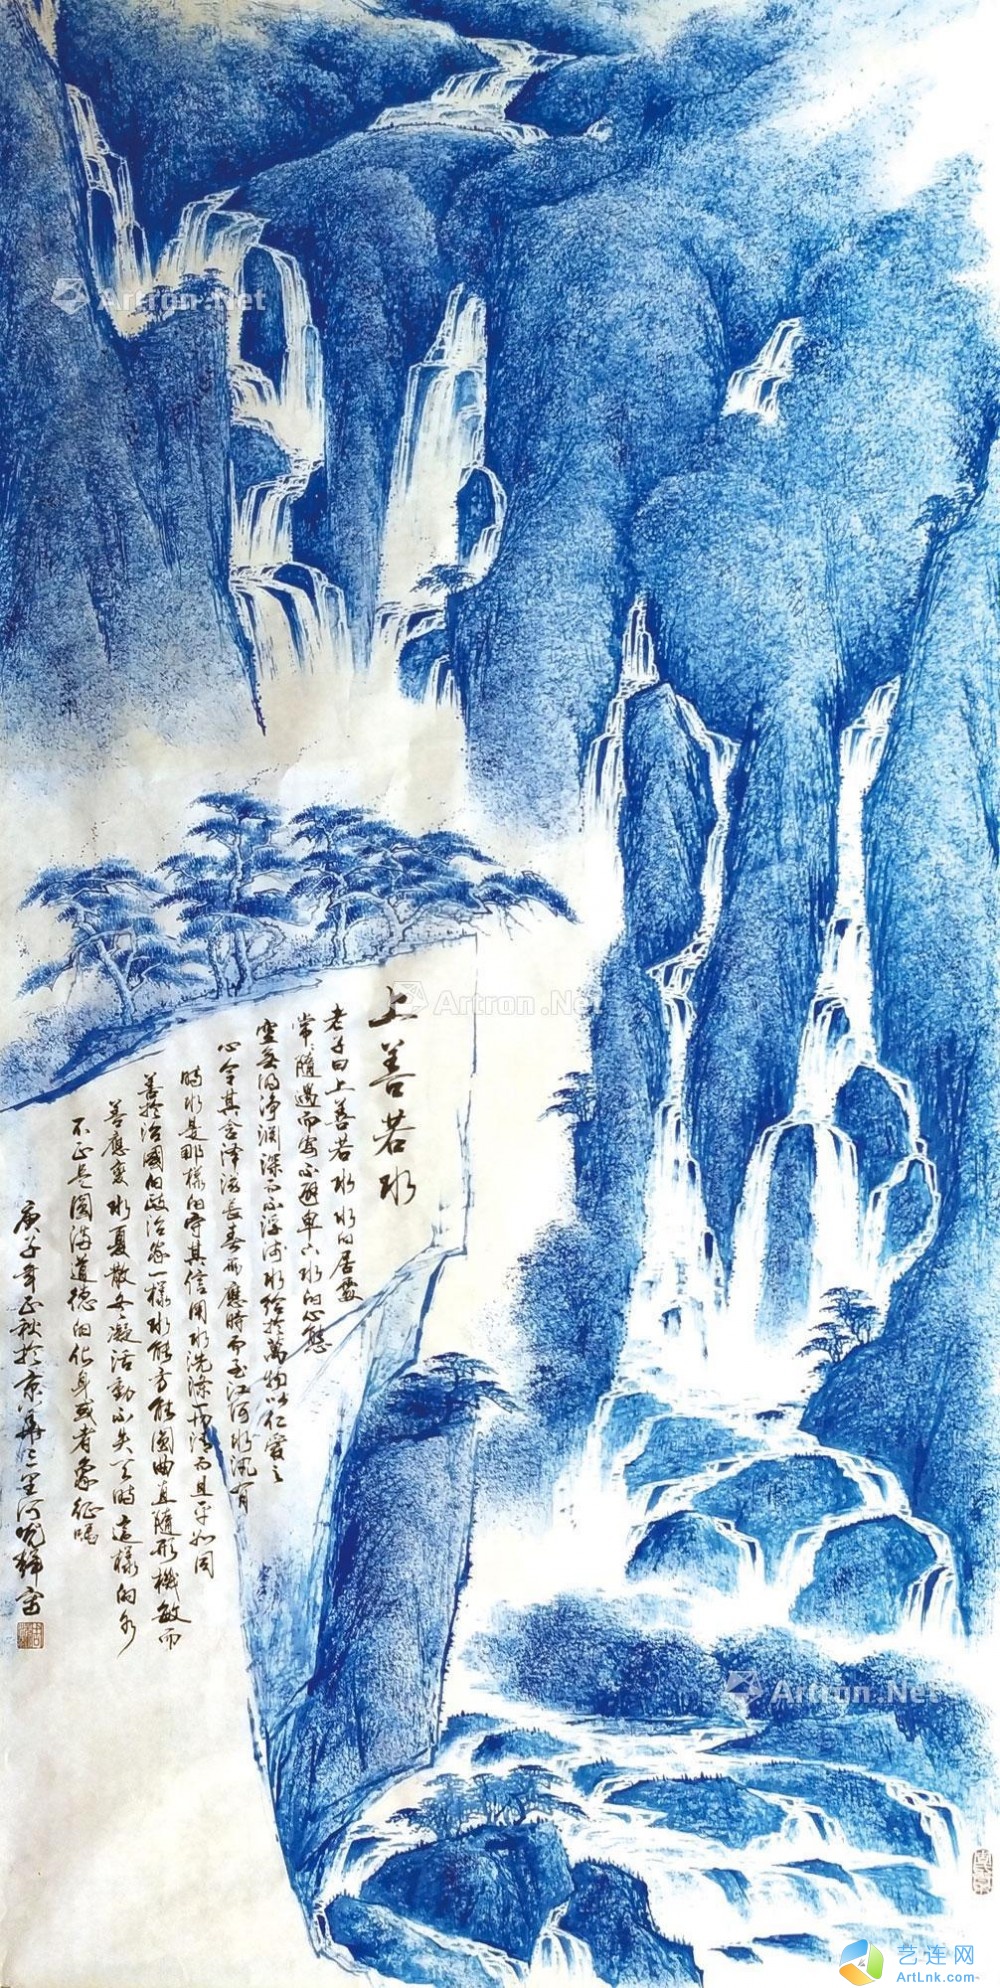 上善若水
老子曰上善若水水的居处
常随遇而安不避卑下水的心态
空无为净渊深而不浮泻水给於万物以仁爱之
心令其含泽滋长春而应时而至江河水汛有
时水是那样的守其信用水洗涤一切清而且平如同
善於治国的政治家一样水能方能圆曲直随形机敏而
善应变水夏散冬凝活动不失天时这样的水
不正是圆满道德的化身或者象征吗
庚子年正秋於京华三里河
Artron.Net
Artron.Net
Artron.Net
艺连网
ArtLnk.com